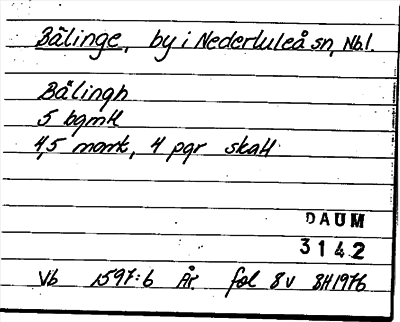 Bälinge, by i Nederluleå sn, Nbl.
Bälingh
5 bgmtl
4,5 mark, 4 pgr skatt
DAUM
3142
Vb 1597:6 År fol 8v BH1976